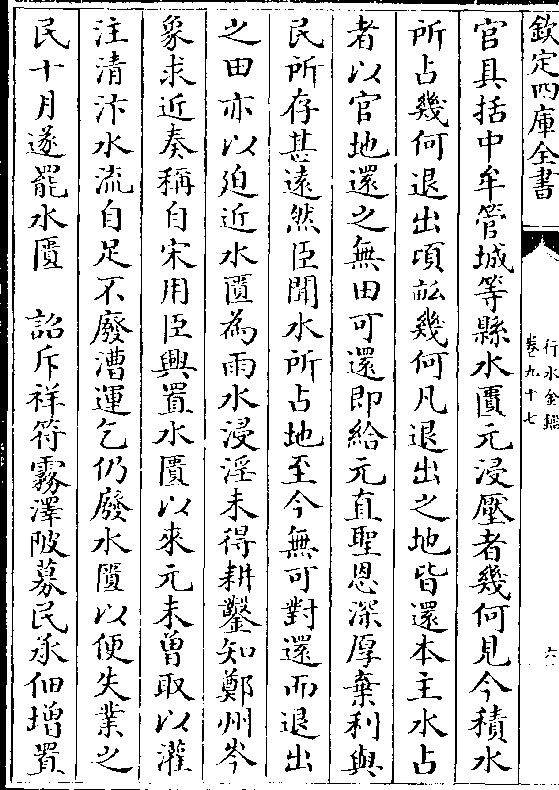 欽定四庫全書
行水金鑑
卷九十七
六
官具括中牟管城等縣水匱元浸壓者幾何見今積水
所占幾何退出頃畝幾何凡退出之地皆還本主水占
者以官地還之無田可還即給元直聖恩深厚棄利與
民所存甚遠然臣聞水所占地至今無可對還而退出
之田亦以迫近水匱為雨水浸淫未得耕鑿知鄭州岑
象求近奏稱自宋用臣興置水匱以來元未曾取以灌
注清汴水流自足不廢漕運乞仍廢水匱以便失業之
民十月遂罷水匱　詔斥祥符霧澤陂募民承佃增置